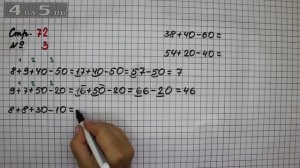 4A5.ru
Стр. 72
№ 3
38+40-60=
54+20-40=
1 2 3
8+9+40-50=17+40-50=57-50=7
1 2 3
9+7+50-20=16+50-20=66-20=46
8+8+30-10=